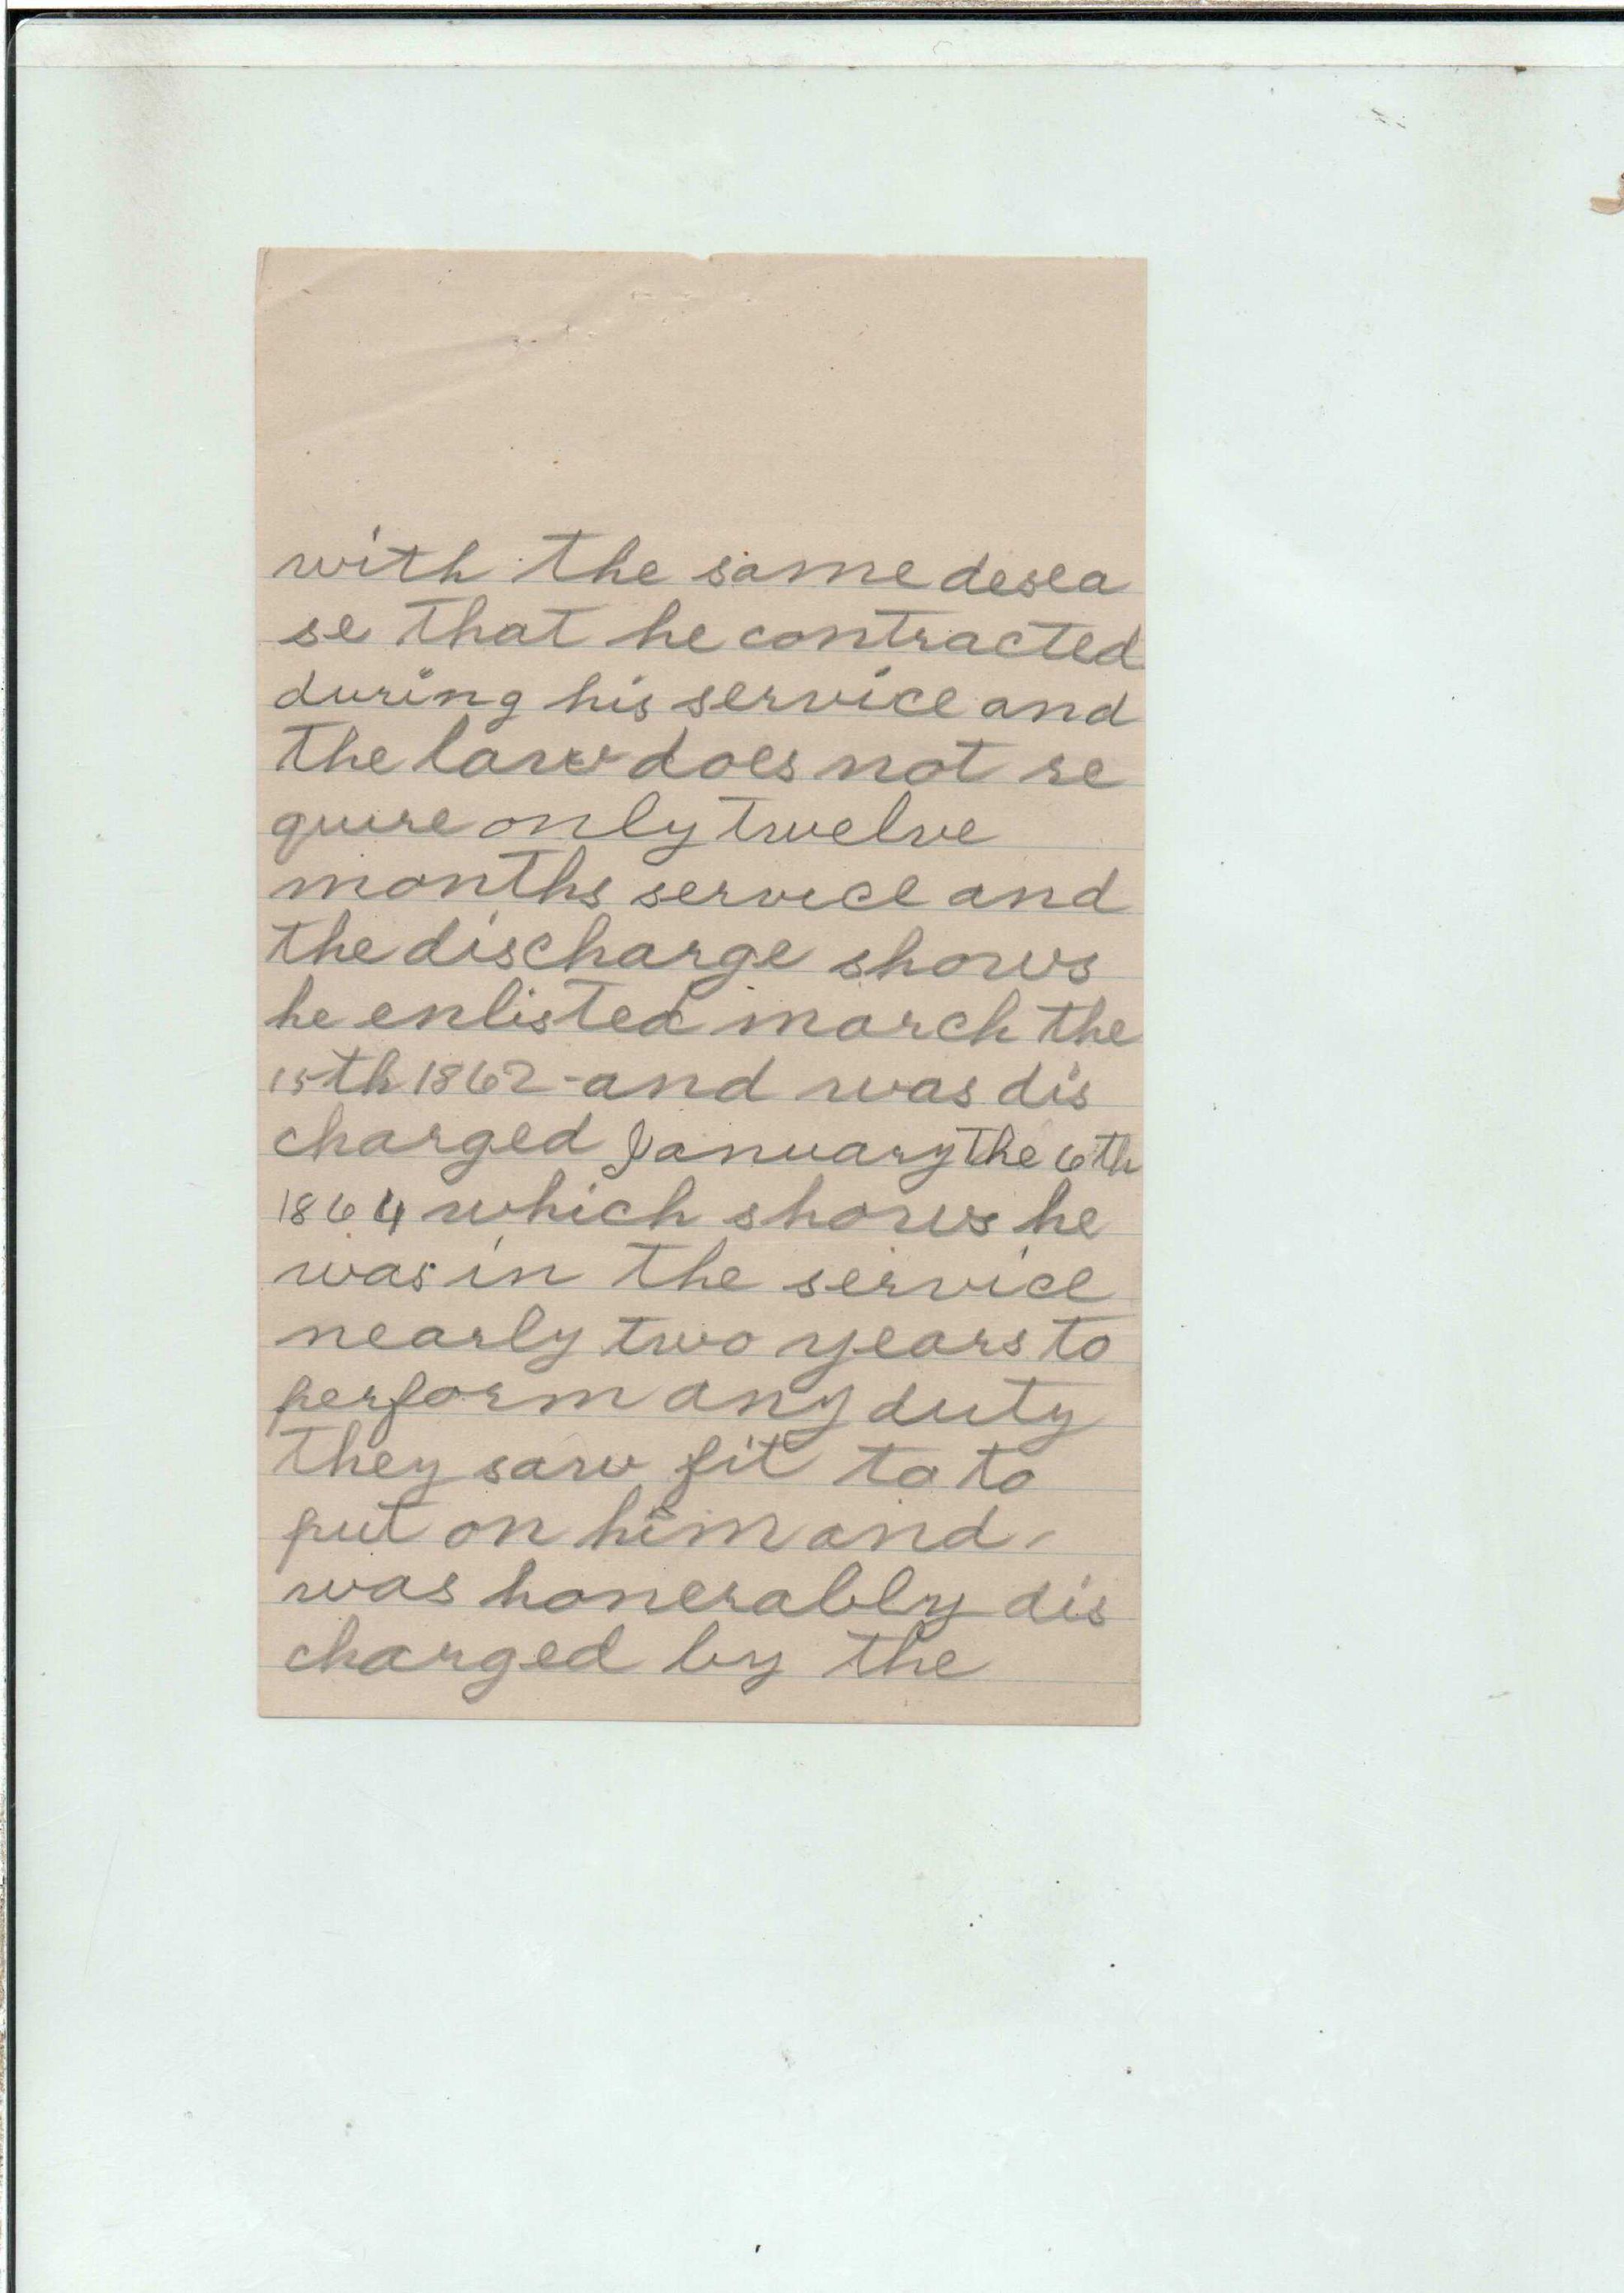 with the same desea
se that he contracted
during his service and
the law does not re
quire only twelve
months service and
the discharge shows
he enlisted march the
15th 1862 - and was dis
charged January the 6th
1864 which shows he
was in the service
nearly two years to
perform any duty
they saw fit to to
put on him and
was honerably dis
charged by the